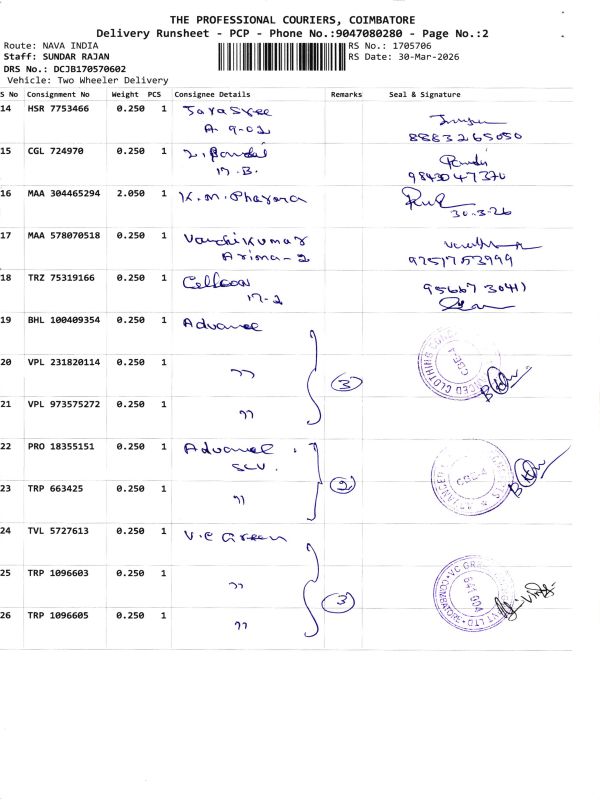 THE PROFESSIONAL COURIERS, COIMBATORE
Delivery Runsheet - PCP - Phone No.:9047080280 - Page No.:2
Route: NAVA INDIA
RS No.: 1705706
Staff: SUNDAR RAJAN
RS Date: 30-Mar-2026
DRS No.: DCJB170570602
Vehicle: Two Wheeler Delivery
S No Consignment No Weight PCS Consignee Details Remarks Seal & Signature
14 HSR 7753466 0.250 1 Jayasree
A 9-02
8883265050
15 CGL 724970 0.250 1
17.B.
9843047370
16 MAA 304465294 2.050 1 K.M.
30-3-26
17 MAA 578070518 0.250 1 Vamshikumar
Arima-2
9751753999
18 TRZ 75319166 0.250 1
17-2
9566730411
19 BHL 100409354 0.250 1 Advance
20 VPL 231820114 0.250 1 "
3
21 VPL 973575272 0.250 1 "
22 PRO 18355151 0.250 1 Advance
SCV.
CBE-4
23 TRP 663425 0.250 1 "
2
24 TVL 5727613 0.250 1 V.C Green
25 TRP 1096603 0.250 1 "
3
641 004
26 TRP 1096605 0.250 1 "